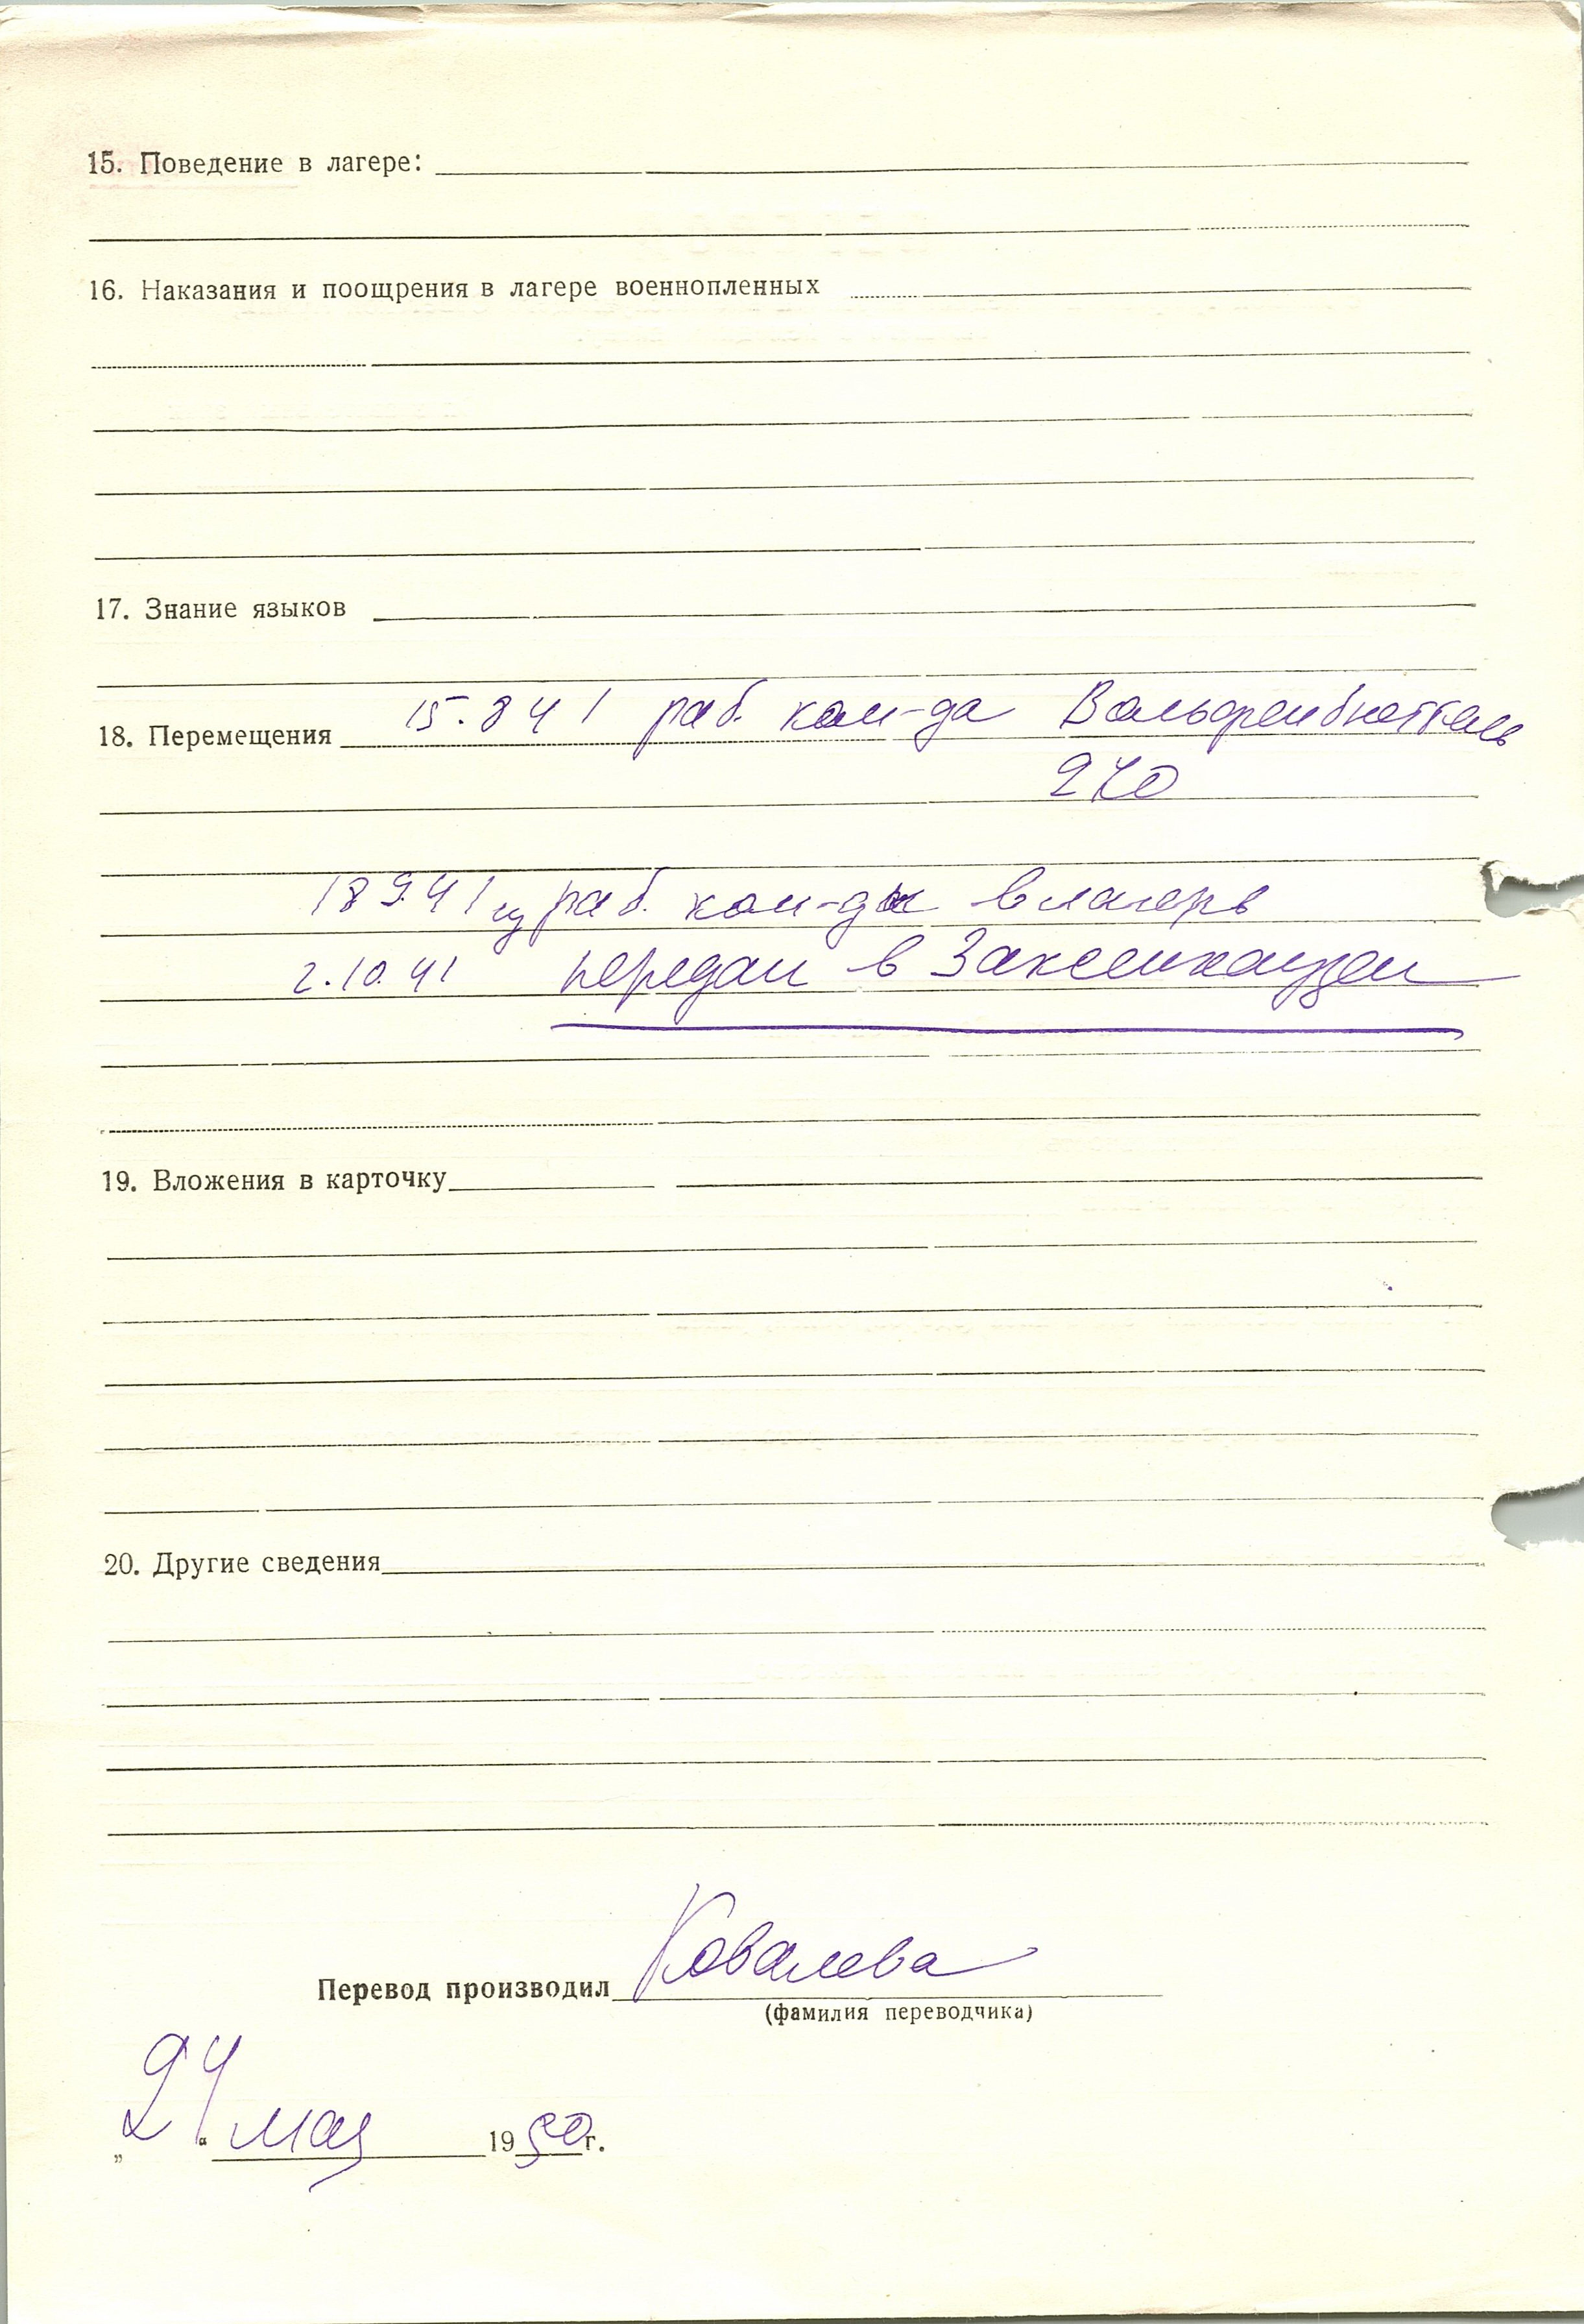 15. Поведение в лагере:
16. Наказания и поощрения в лагере военнопленных
17. Знание языков
18. Перемещения 15.8 41 раб. ком-да Вольфенбюттель
240
18 9.41 из раб. ком-ды в лагерь
2.10.41 передан в Заксенхаузен
19. Вложения в карточку
20. Другие сведения
Перевод производил Ковалева
(фамилия переводчика)
„24“ мая 1950г.